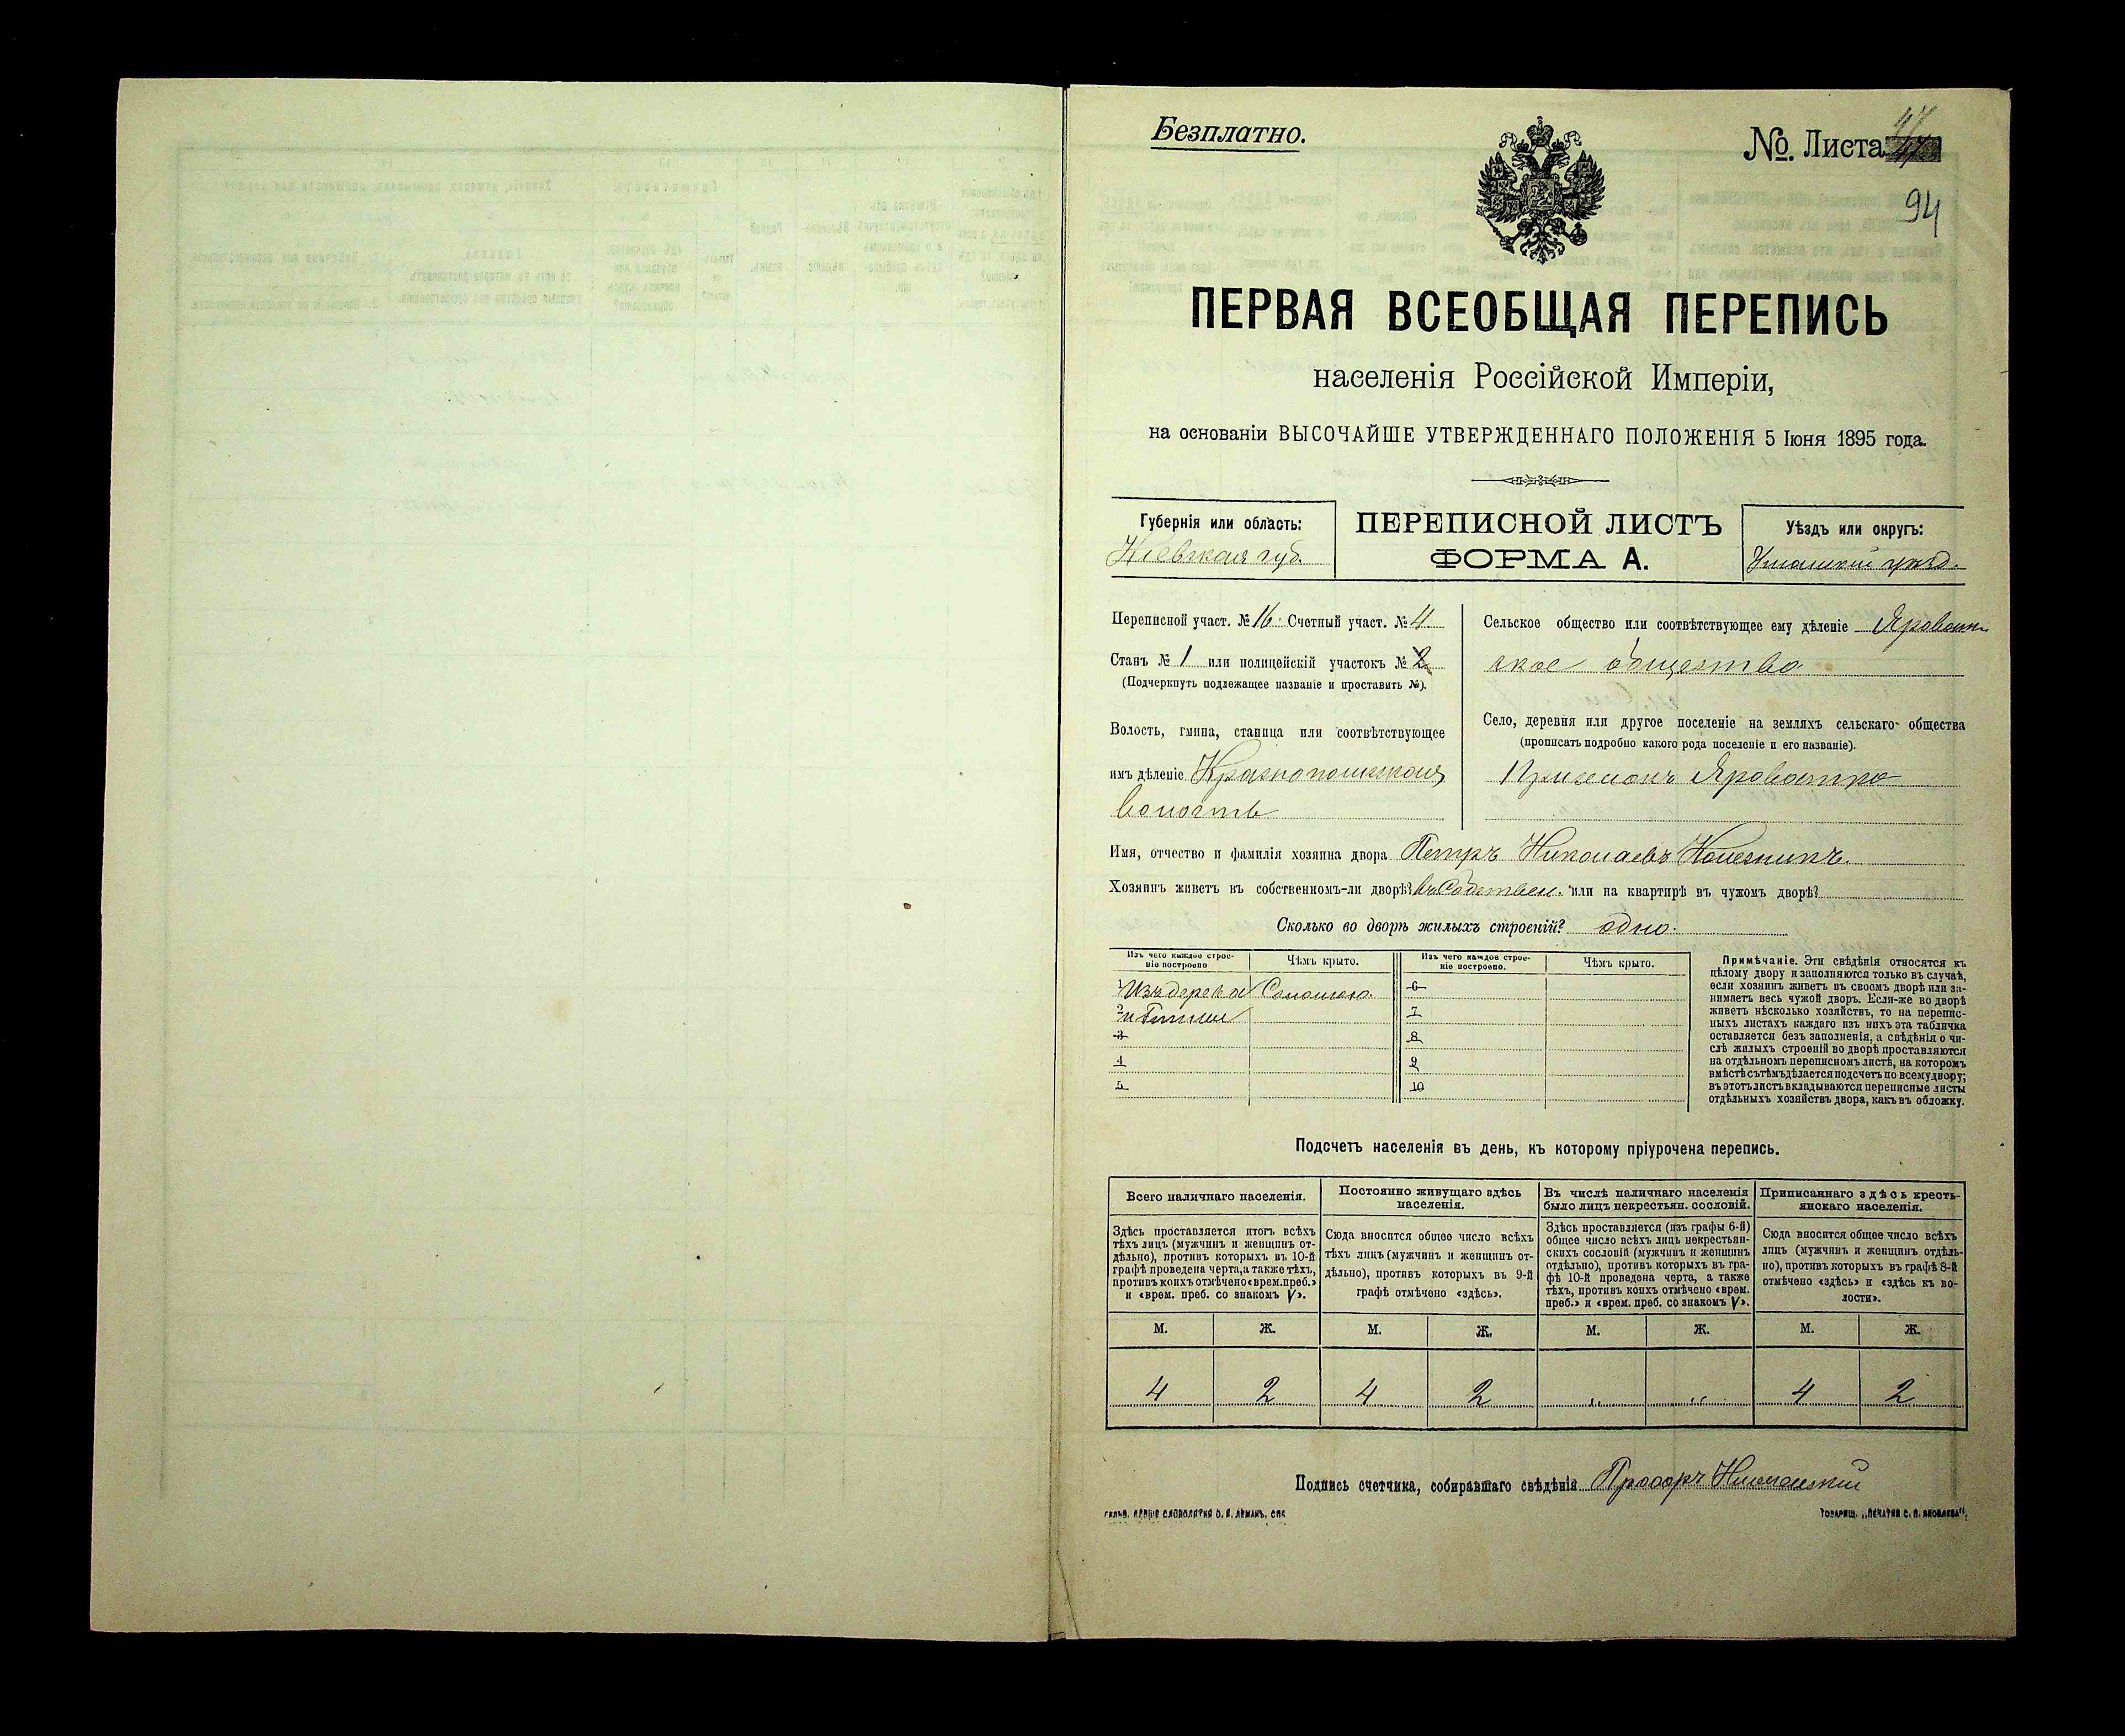 Безплатно.
№. Листа 47
94
ПЕРВАЯ ВСЕОБЩАЯ ПЕРЕПИСЬ
населенія Россійской Имперіи,
на основаніи ВЫСОЧАЙШЕ УТВЕРЖДЕННАГО ПОЛОЖЕНІЯ 5 Іюня 1895 года.
Губернія или область:
Кіевская губ.
ПЕРЕПИСНОЙ ЛИСТЪ
ФОРМА А.
Уѣздъ или округъ:
Уманскій уѣзд.
Переписной участ. № 16. Счетный участ. № 4.
Станъ № 1 или полицейскій участокъ № 2
(Подчеркнуть подлежащее названіе и проставить №).
Волость, гмина, станица или соотвѣтствующее
имъ дѣленіе Краснополкская
волость
Сельское общество или соотвѣтствующее ему дѣленіе Яроват-
ское общество
Село, деревня или другое поселеніе на земляхъ сельскаго общества
(прописать подробно какого рода поселеніе и его названіе).
Яроватка
Имя, отчество и фамилія хозяина двора Петръ Николаевъ Колесникъ.
Хозяинъ живетъ въ собственномъ-ли дворѣ? въ Собствен. или на квартирѣ въ чужомъ дворѣ?
Сколько во дворѣ жилыхъ строеній? одно.
Изъ чего каждое строе-
ніе построено
Чѣмъ крыто.
Изъ чего каждое строе-
ніе построено.
Чѣмъ крыто.
1 Изъ дерева Соломою. 6
2 и Глины 7
3 8
4 9
5 10
Примѣчаніе. Эти свѣдѣнія относятся къ
цѣлому двору и заполняются только въ случаѣ,
если хозяинъ живетъ въ своемъ дворѣ или за-
нимаетъ весь чужой дворъ. Если-же во дворѣ
живетъ нѣсколько хозяйствъ, то на перепис-
ныхъ листахъ каждаго изъ нихъ эта табличка
оставляется безъ заполненія, а свѣдѣнія о чи-
слѣ жилыхъ строеній во дворѣ проставляются
на отдѣльномъ переписномъ листѣ, на которомъ
вмѣстѣ съ тѣмъ дѣлается подсчетъ по всему двору;
въ этотъ листъ вкладываются переписные листы
отдѣльныхъ хозяйствъ двора, какъ въ обложку.
Подсчетъ населенія въ день, къ которому пріурочена перепись.
Всего наличнаго населенія.
Постоянно живущаго здѣсь
населенія.
Въ числѣ наличнаго населенія
было лицъ некрестьян. сословій.
Приписаннаго здѣсь кресть-
янскаго населенія.
Здѣсь проставляется итогъ всѣхъ
тѣхъ лицъ (мужчинъ и женщинъ от-
дѣльно), противъ которыхъ въ 10-й
графѣ проведена черта, а также тѣхъ,
противъ коихъ отмѣчено «врем. преб.»
и «врем. преб. со знакомъ V».
Сюда вносится общее число всѣхъ
тѣхъ лицъ (мужчинъ и женщинъ от-
дѣльно), противъ которыхъ въ 9-й
графѣ отмѣчено «здѣсь».
Здѣсь проставляется (изъ графы 6-й)
общее число всѣхъ лицъ некрестьян-
скихъ сословій (мужчинъ и женщинъ
отдѣльно), противъ которыхъ въ гра-
фѣ 10-й проведена черта, а также
тѣхъ, противъ коихъ отмѣчено «врем.
преб.» и «врем. преб. со знакомъ V».
Сюда вносится общее число всѣхъ
лицъ (мужчинъ и женщинъ отдѣль-
но), противъ которыхъ въ графѣ 8-й
отмѣчено «здѣсь» и «здѣсь къ во-
лости».
М. Ж. М. Ж. М. Ж. М. Ж.
4 2 4 2 „ „ 4 2
Подпись счетчика, собиравшаго свѣдѣнія Прохоръ
ТОВАРИЩ. „ПЕЧАТНЯ С. П. ЯКОВЛЕВА".